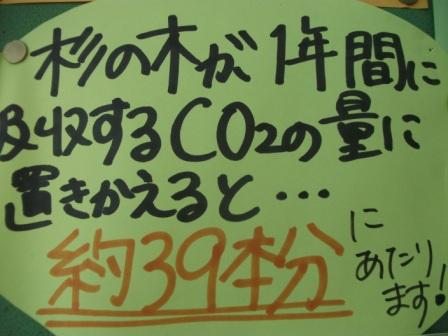 杉の木が1年間に
吸収するCO2の量に
置きかえると…
約39本分
に
あたり
ます!